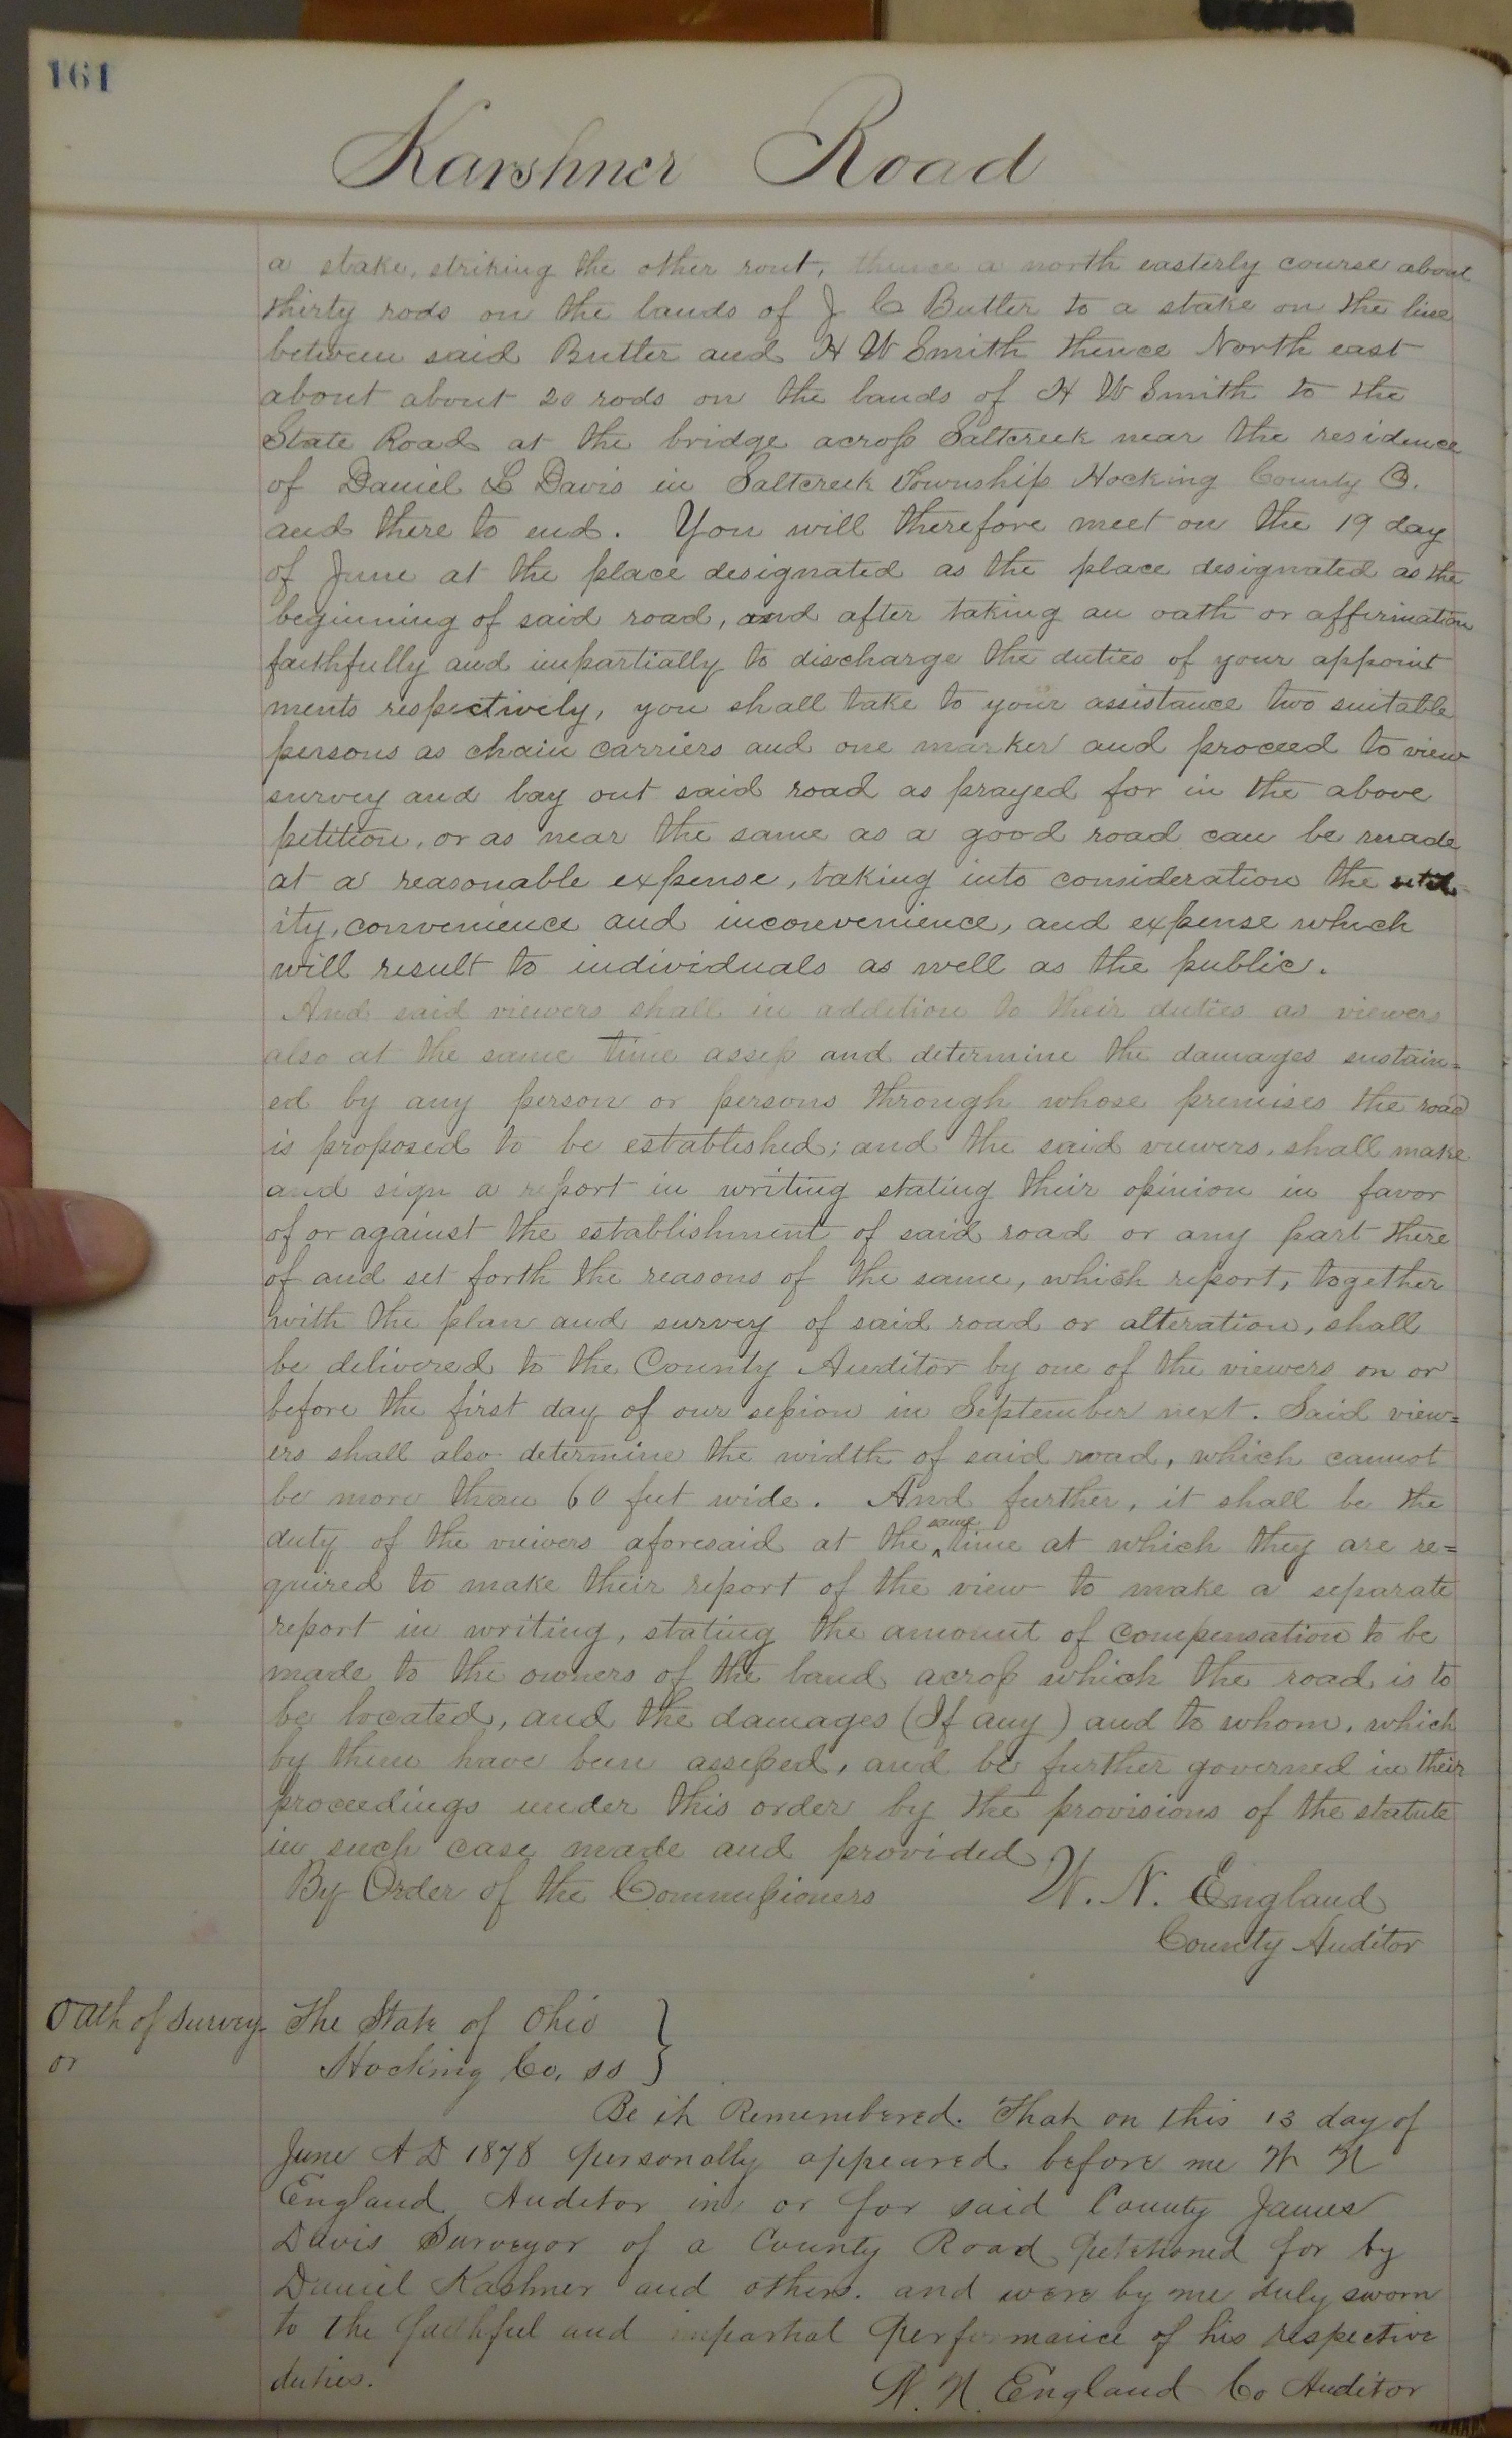 161
Karshner Road
a stake, striking the other rout, thence a north easterly course about
thirty rods on the lands of J C Butler to a stake on the line
between said Butler and H W Smith thence North east
about about 20 rods on the lands of H W Smith to the
State Road at the bridge across Saltcreek near the residence
of Daniel L Davis in Saltcreek Township Hocking County O.
and there to end. You will therefore meet on the 19 day
of June at the place designated as the place designated as the
beginning of said road, and after taking an oath or affirmation
faithfully and impartially to discharge the duties of your appoint
ments respectively, you shall take to your assistance two suitable
persons as chain carriers and one marker and proceed to view
survey and lay out said road as prayed for in the above
petition, or as near the same as a good road can be made
at a reasonable expense, taking into consideration the util
ity, convenience and inconvenience, and expense which
will result to individuals as well as the public.
And said viewers shall in addition to their duties as viewers
also at the same time assess and determine the damages sustain=
ed by any person or persons through whose premises the road
is proposed to be established; and the said viewers, shall make
and sign a report in writing stating their opinion in favor
of or against the establishment of said road or any part there
of and set forth the reasons of the same, which report, together
with the plan and survey of said road or alteration, shall
be delivered to the County Auditor by one of the viewers on or
before the first day of our session in September next. Said view=
ers shall also determine the width of said road, which cannot
be more than 60 feet wide. And further, it shall be the
duty of the veiwers aforesaid at the same time at which they are re=
quired to make their report of the view to make a separate
report in writing, stating the amount of compensation to be
made to the owners of the land across which the road is to
be located, and the damages (If any) and to whom, which
by them have been assessed, and be further governed in their
proceedings under this order by the provisions of the statute
in such case made and provided
By Order of the Commissioners W. N. England
County Auditor
Oath of Survey-
or
The State of Ohio }
Hocking Co, ss }
Be it Remembered. That on this 13 day of
June A D 1878 personally appeared before me W N
England Auditor in or for said County James
Davis Surveyor of a County Road petetioned for by
Daniel Kashner and others. and were by me duly sworn
to the faithful and impartial performance of his respective
duties.
W. N. England Co Auditor